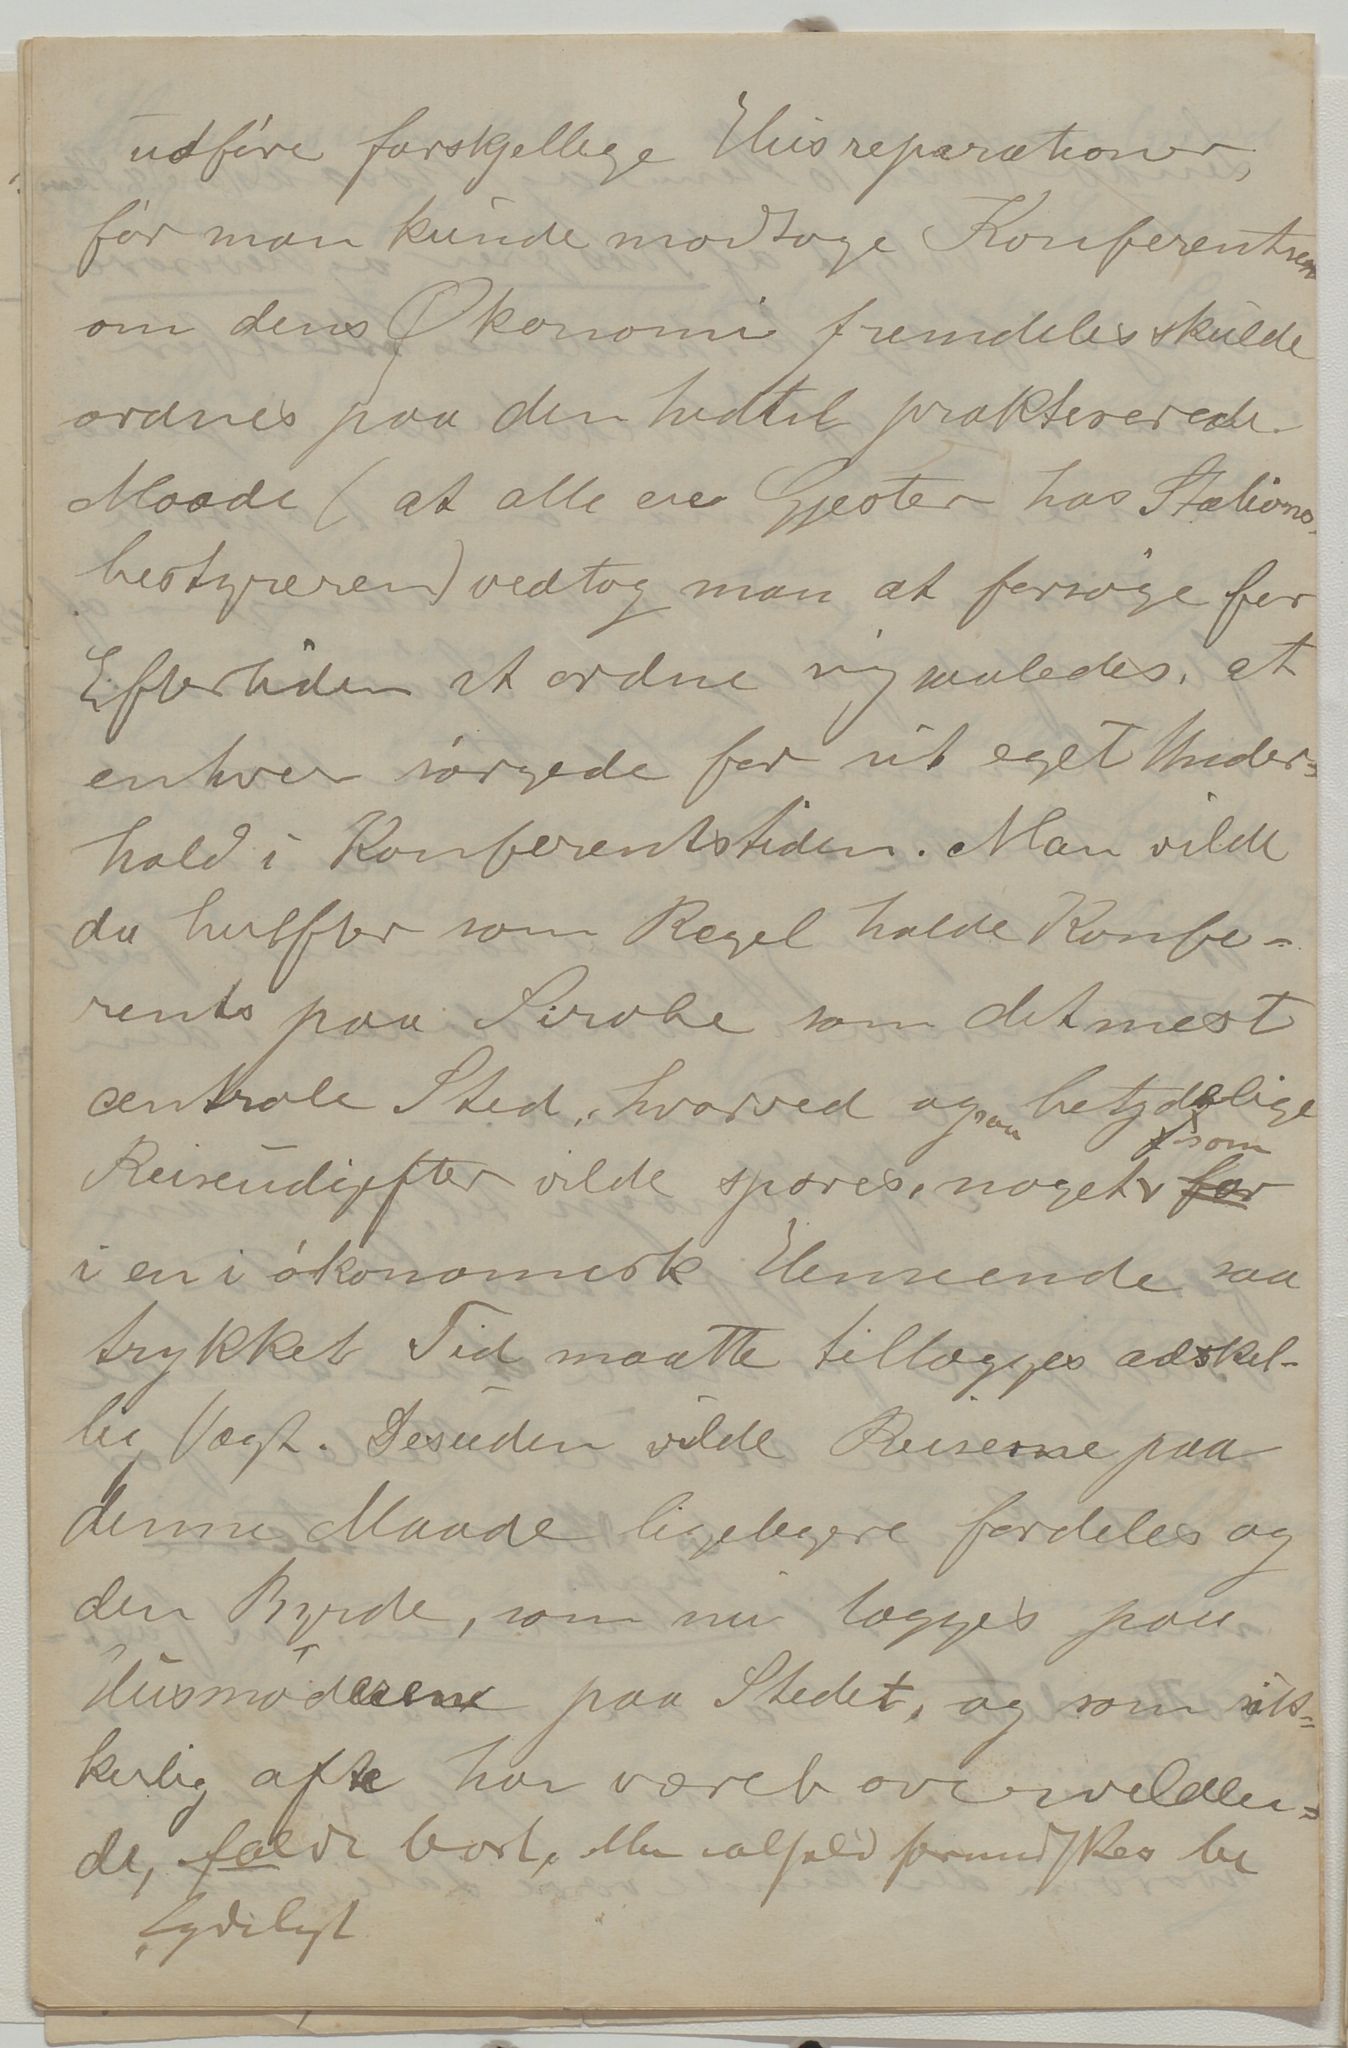 udföre forskjellige Husreparationer,
för man kunde modtage Konferentsen
om dens Økonomi fremdeles skulde
ordnes paa den hidtil praktiserede
Maade (at alle ere Gjester hos Stations-
bestyreren) vedtog man at forsöge for
Eftertiden at ordne sig saaledes, at
enhver sörgede for sit eget Under-
hold i Konferentstiden. Man vilde
da herefter som Regel holde Konfe-
rents paa Sirabe som det mest
centrale Sted, hvorved ogsaa betydelige
Reiseudgifter vilde spares, noget, som for
i en i ökonomisk Henseende saa
trykket Tid maatte tillægges adskil-
lig Vægt. Desuden vilde Reiserne paa
denne Maade ligeligere fordeles og
den Byrde, som nu lægges paa
Husmödrene paa Stedet, og som sik-
kerlig ofte har været overvælden-
de, falde bort, eller ialfald formindskes be
tydeligt